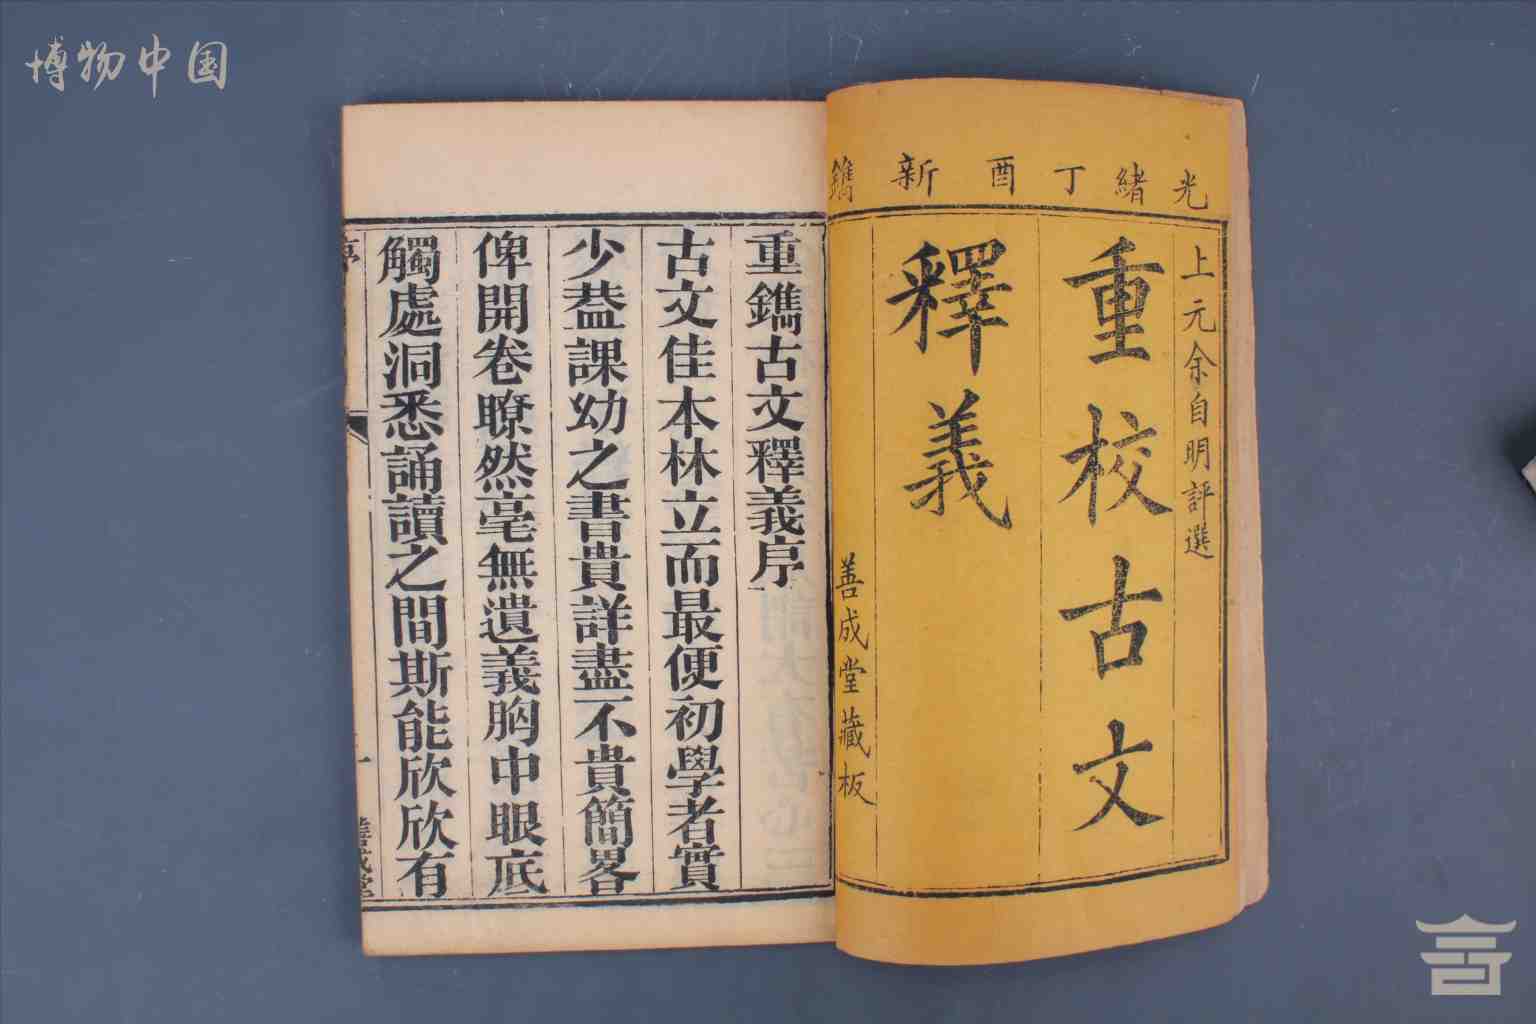 博物中国
光緒丁酉新鐫
上元余自明評選
重校古文
釋義
善成堂藏板
重鐫古文釋義序
古文佳本林立而最便初學者實
少葢課幼之書貴詳盡不貴簡畧
俾開卷瞭然毫無遺義胸中眼底
觸處洞悉誦讀之間斯能欣欣有
序
一
善成堂